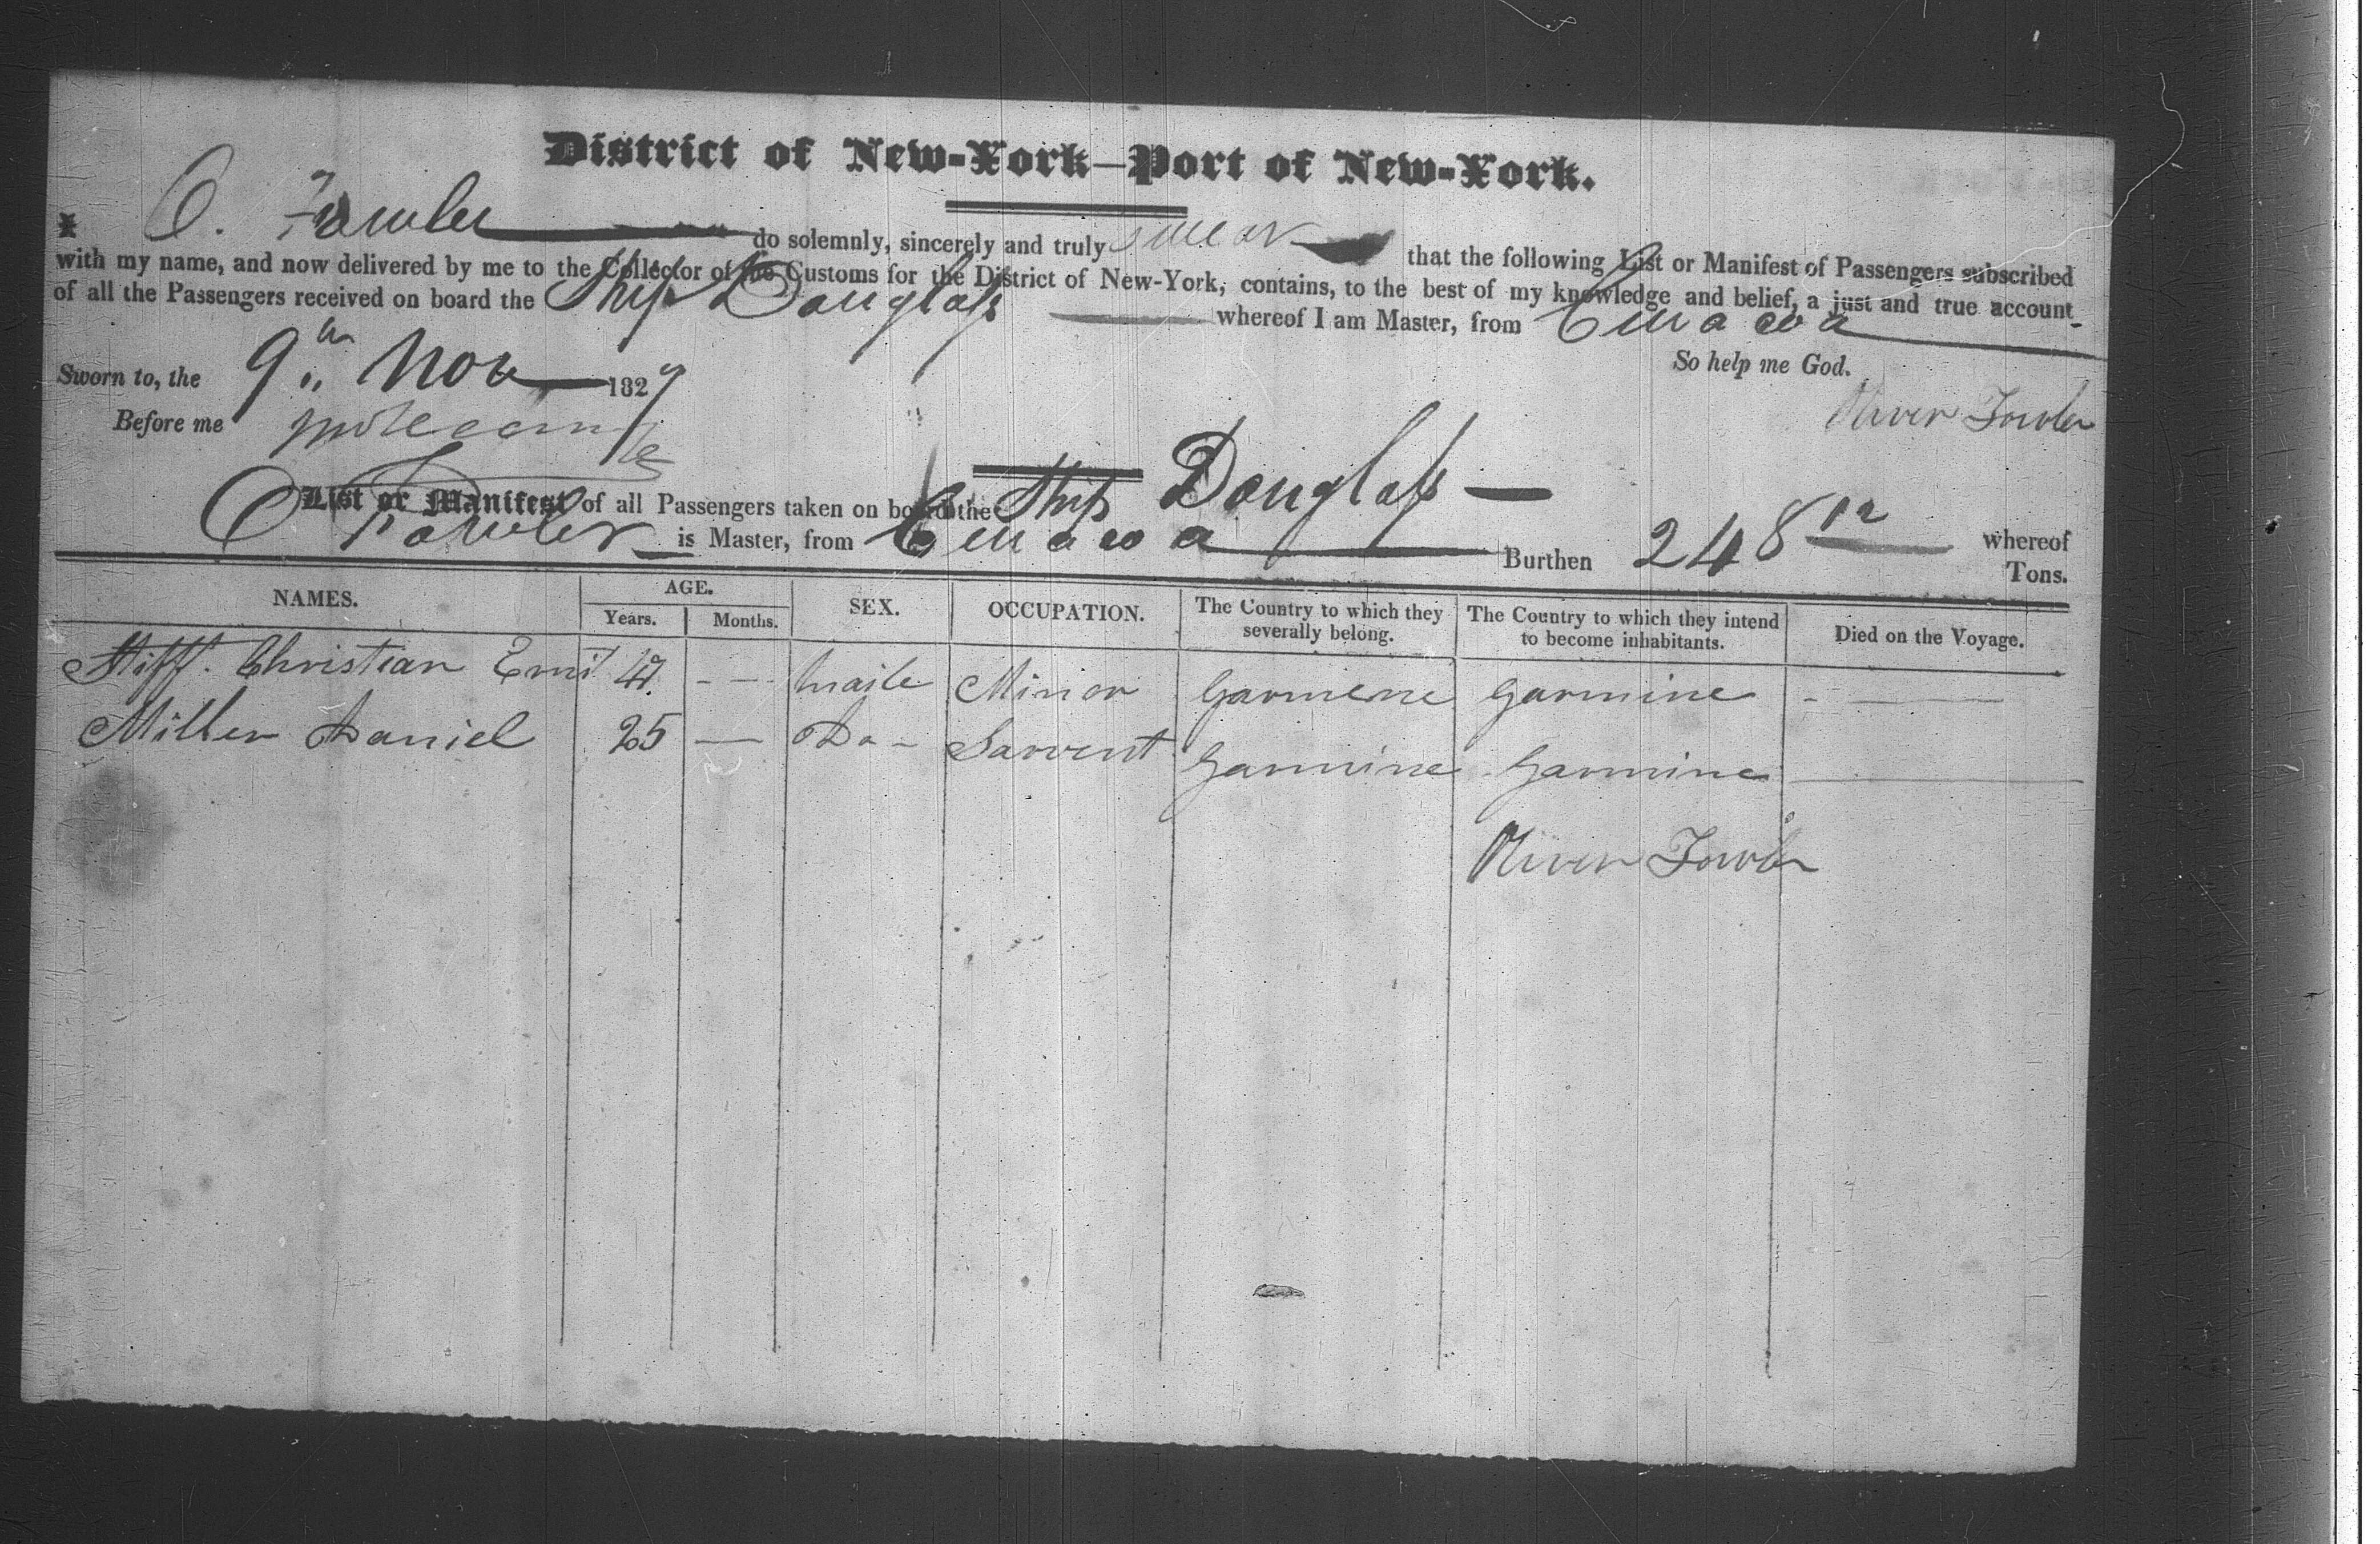 District of New-York—Port of New-York.
I O. Fowler do solemnly, sincerely and truly swear that the following List or Manifest of Passengers subscribed
with my name, and now delivered by me to the Collector of the Customs for the District of New-York, contains, to the best of my knowledge and belief, a just and true account
of all the Passengers received on board the Ship Douglass whereof I am Master, from Curacoa
So help me God.
Sworn to, the 9th Nov 1827
Oliver Fowler
Before me
List or Manifest of all Passengers taken on board the Ship Douglass — whereof
O Fowler is Master, from Curacoa Burthen 248 12 Tons.
NAMES. AGE. SEX. OCCUPATION. The Country to which they severally belong. The Country to which they intend to become inhabitants. Died on the Voyage.
Years. Months.
Christian Emil - - Maile Minor Garmene Garmine - —
Miller Daniel 25 — Do - Sarvent Garmine Garmine —
Oliver Fowler